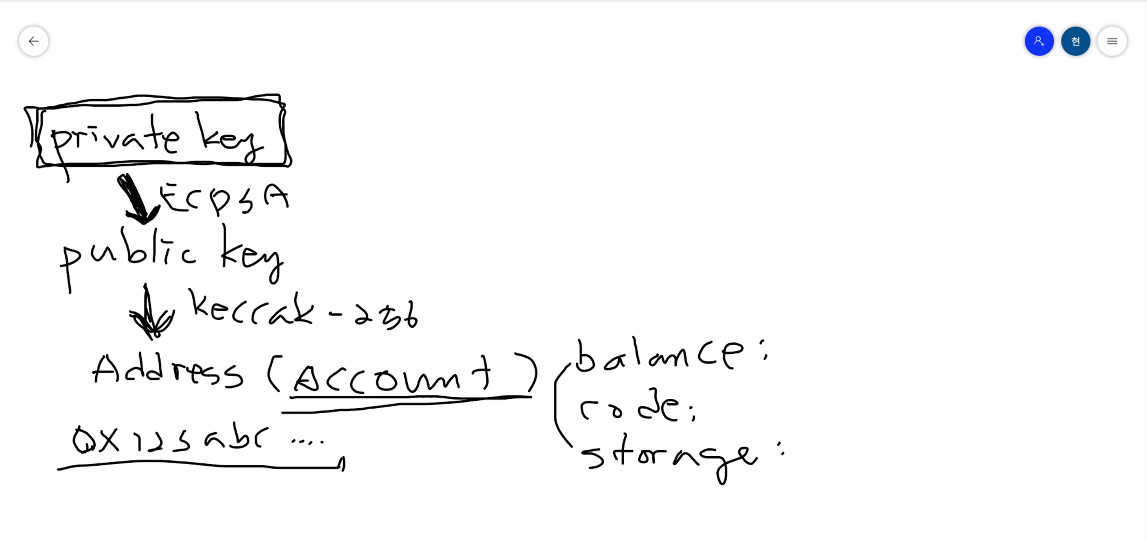 현
private key
ECDSA
public key
keccak-256
Address (Account)
balance:
code:
storage:
0x123abc ....